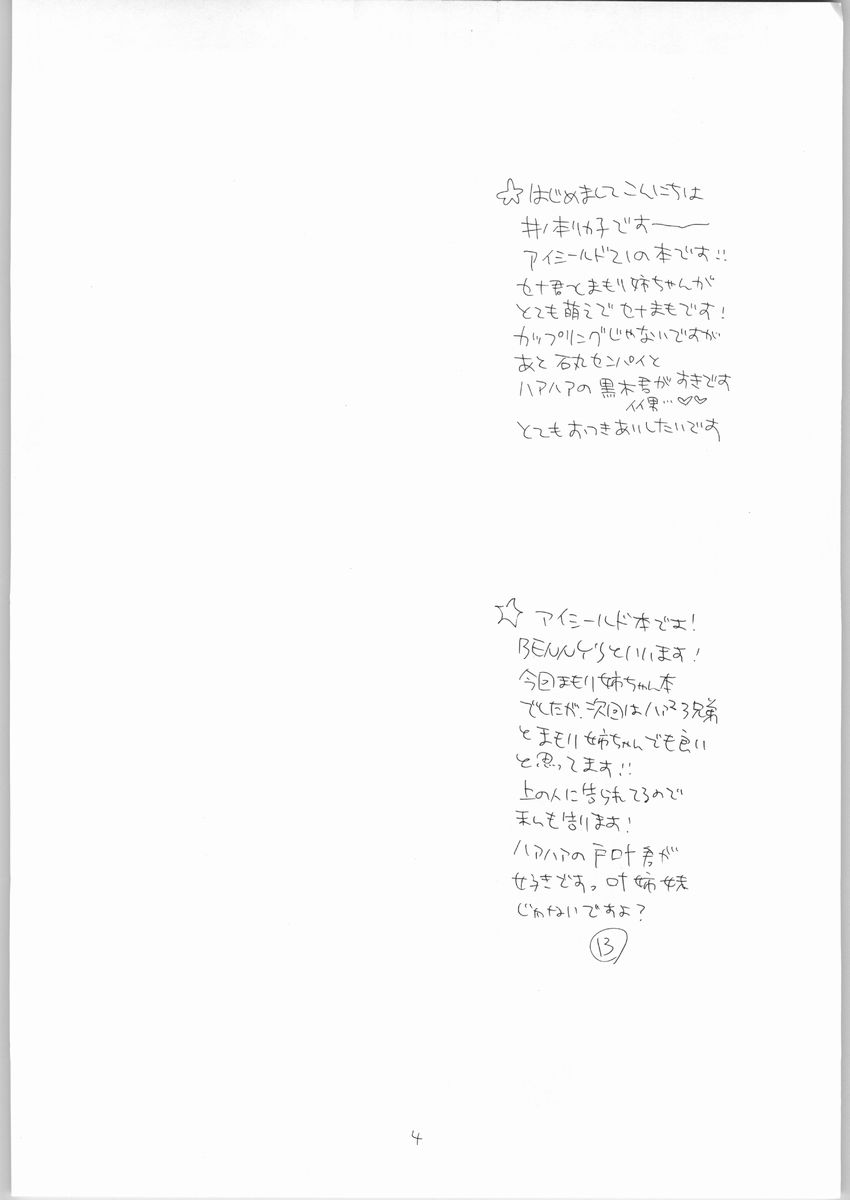 ☆はじめましてこんにちは
井ノ本リカ子です〜
アイシールド21の本です!!
セナ君とまもり姉ちゃんが
とても萌えでセナまもです!
カップリングじゃないですが
あと石丸センパイと
ハアハアの黒木君がすきです
イイ男…♡♡
とてもおつきあいしたいです
☆アイシールド本です!
BENNY'Sといいます!
今回まもり姉ちゃん本
でしたが、次回はハアハア3兄弟
とまもり姉ちゃんでも良い
と思ってます!!
上の人に告られてるので
私も告ります!
ハアハアの戸叶君が
好きですっ叶姉妹
じゃないですよ?
13
4